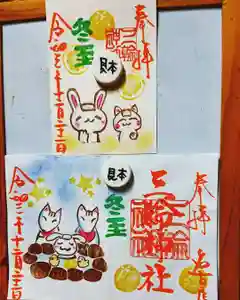 奉拝
冬至
見本
令和三年十二月二十二日
奉拝
三輪神社
見本
冬至
令和三年十二月二十二日